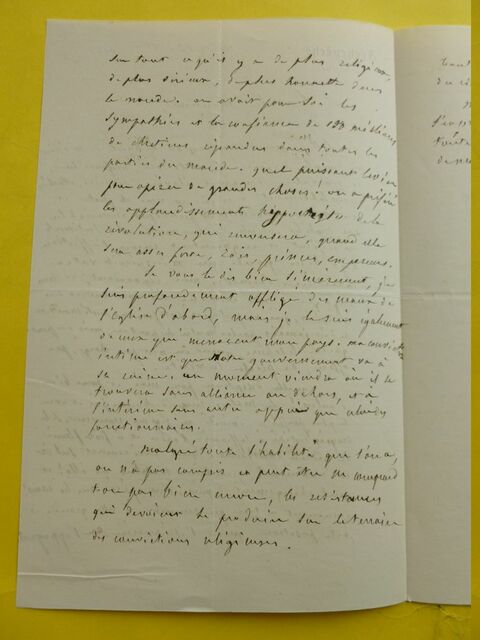 sur tout ce qu'il y a de plus religieux,
de plus sérieux, de plus honnête dans
le monde. on avait pour soi les
sympathies et la confiance de 200 millions
de chrétiens répandus dans toutes les
parties du monde. quel puissant levier
pour opérer de grandes choses! on a préféré
les applaudissements hypocrites de la
révolution, qui renversera, quand elle
sera assez forte, Rois, princes, empereurs.
Je vous le dis bien sincèrement, je
suis profondément affligé des maux de
l'église d'abord, mais je le suis également
de ceux qui menacent mon pays. ma conviction
intime est que notre gouvernement va à
sa ruine. un moment viendra où il se
trouvera sans alliance au dehors, et à
l'intérieur sans autre appui que
fonctionnaires.
malgré toute l'habileté que l'on a,
on n'a pas compris et peut être ne comprend
t-on pas bien encore, les résistances
qui devaient se produire sur le terrain
des convictions religieuses.